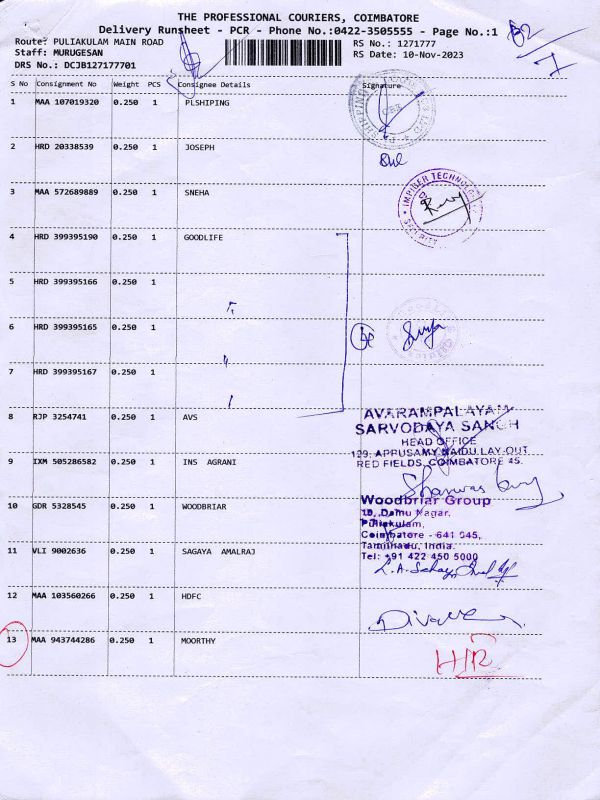 THE PROFESSIONAL COURIERS, COIMBATORE
Delivery Runsheet - PCR - Phone No.:0422-3505555 - Page No.:1
Route: PULIAKULAM MAIN ROAD
RS No.: 1271777
Staff: MURUGESAN
RS Date: 10-Nov-2023
DRS No.: DCJB127177701
S No Consignment No Weight PCS Consignee Details Signature
1 MAA 107019320 0.250 1 PLSHIPING
2 HRD 20338539 0.250 1 JOSEPH
3 MAA 572689889 0.250 1 SNEHA
IMPIGER TECHNOLOG
SECURITY
4 HRD 399395190 0.250 1 GOODLIFE
5 HRD 399395166 0.250 1
6 HRD 399395165 0.250 1
7 HRD 399395167 0.250 1
8 RJP 3254741 0.250 1 AVS
AVARAMPALAYAM
SARVODAYA SANGH
HEAD OFFICE
129, APPUSAMY NAIDU LAY-OUT,
RED FIELDS, COIMBATORE 45.
9 IXM 505286582 0.250 1 INS AGRANI
10 GDR 5328545 0.250 1 WOODBRIAR
Woodbriar Group
Damu Nagar,
Puliakulam,
Coimbatore - 641 045,
Tamilnadu, India.
Tel: +91 422 450 5000
11 VLI 9002636 0.250 1 SAGAYA AMALRAJ
12 MAA 103560266 0.250 1 HDFC
13 MAA 943744286 0.250 1 MOORTHY